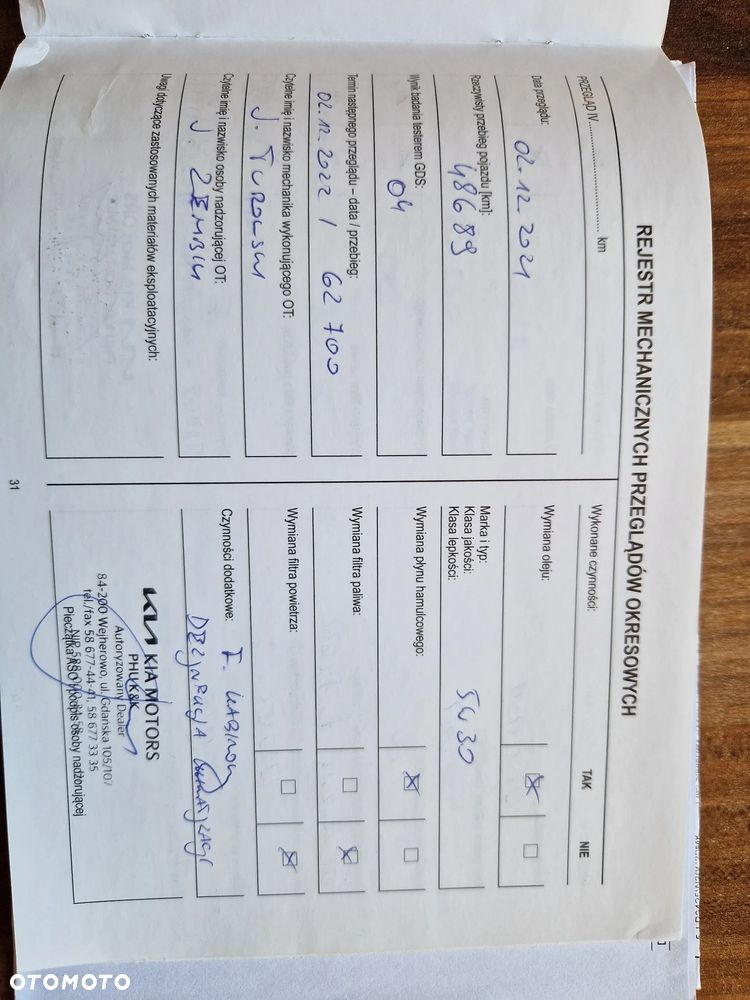 REJESTR MECHANICZNYCH PRZEGLĄDÓW OKRESOWYCH
PRZEGLĄD IV.............................. km
Data przeglądu:
02.12.2021
Rzeczywisty przebieg pojazdu [km]:
48689
Wynik badania testerem GDS:
04
Termin następnego przeglądu – data / przebieg:
02.12.2022 / 62 700
Czytelne imię i nazwisko mechanika wykonującego OT:
J. TUROWSKI
Czytelne imię i nazwisko osoby nadzorującej OT:
J ZEMBIU
Uwagi dotyczące zastosowanych materiałów eksploatacyjnych:
Wykonane czynności: TAK NIE
Wymiana oleju:
Marka i typ:
Klasa jakości:
Klasa lepkości: 5W30
Wymiana płynu hamulcowego:
Wymiana filtra paliwa:
Wymiana filtra powietrza:
Czynności dodatkowe: F. KABINOWY
KIA KIA MOTORS
PHU K&K
Autoryzowany Dealer
84-200 Wejherowo, ul. Gdańska 105/107
tel./fax 58 677-44-41, 58 677 33 35
NIP 588
Pieczątka ASO i podpis osoby nadzorującej
31
OTOMOTO